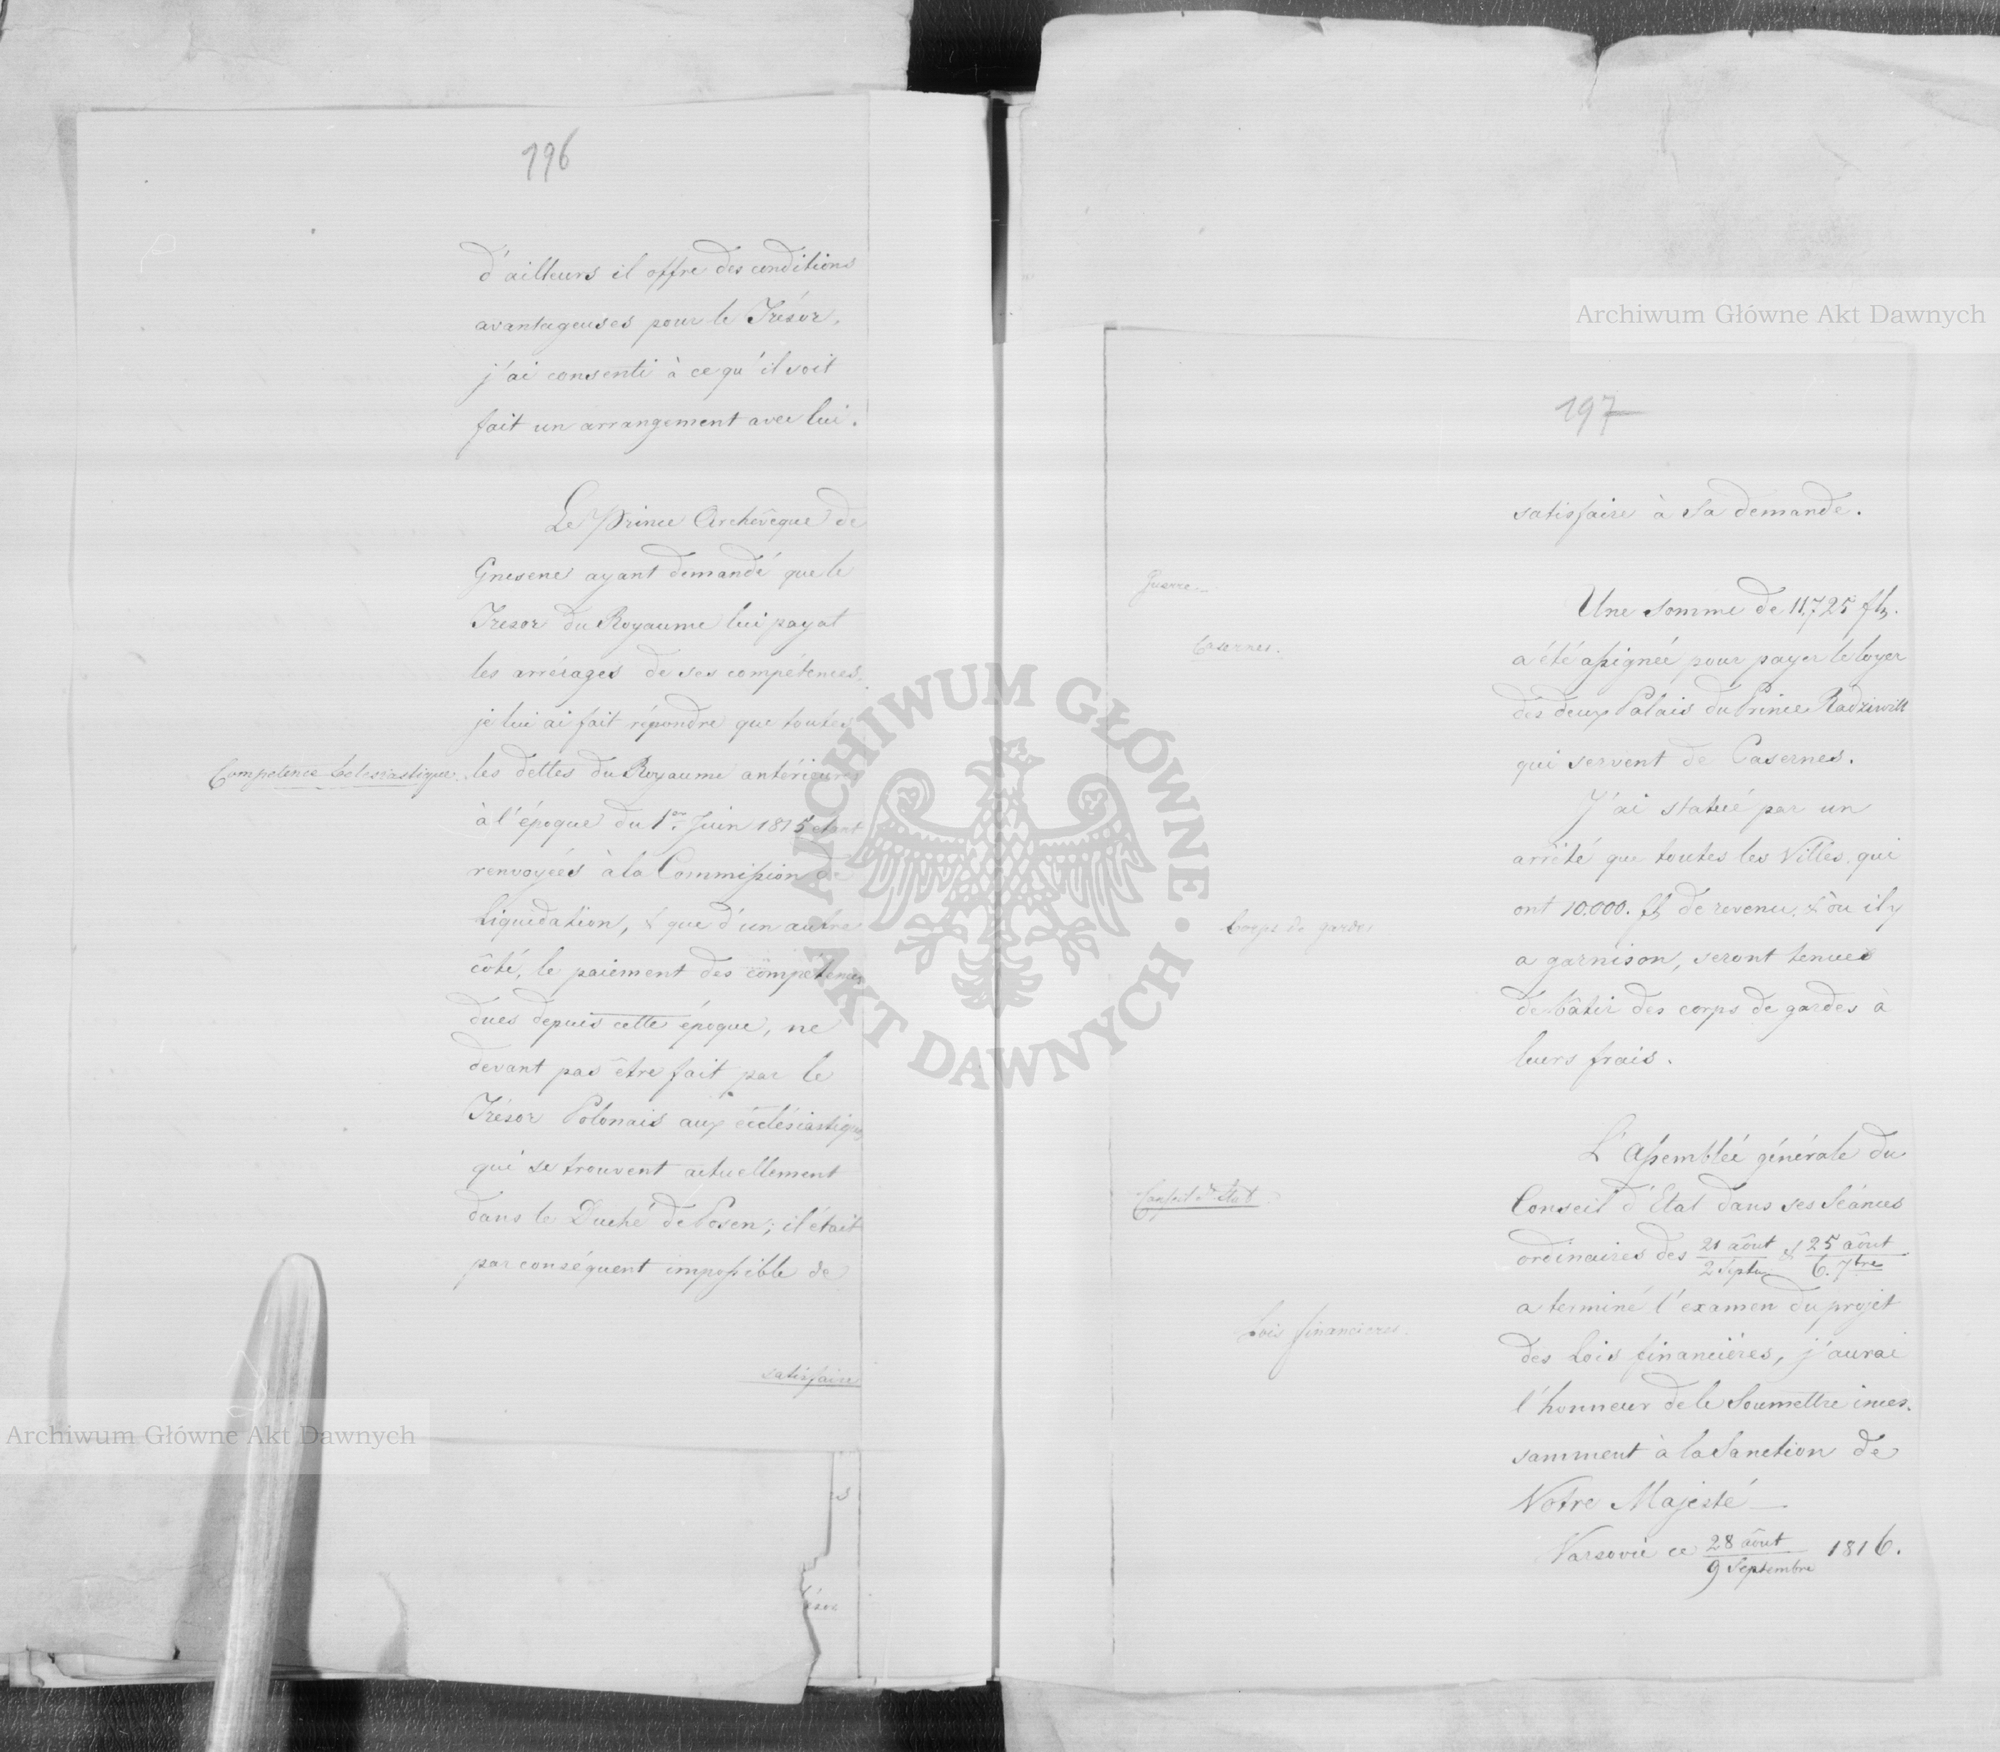 196
d'ailleurs il offre des conditions
avantageuses pour le Trésor,
j'ai consenti à ce qu'il soit
fait un arrangement avec lui.
Le Prince Archevêque de
Gnesene ayant demandé que le
Tresor du Royaume lui payat
les arrérages de ses compétences,
je lui ai fait répondre que toutes
Competence Eclesiastique.
les dettes du Royaume antérieures
à l'époque du 1er Juin 1815 etant
renvoyées à la Commission de
Liquidation, & que d'un autre
côté, le paiement des compétences
dues depuis cette époque, ne
devant pas être fait par le
Trésor Polonais aux écclésiastiques
qui se trouvent actuellement
dans le Duché de Posen; il était
par conséquent impossible de
satisfaire
s
ésor
Archiwum Główne Akt Dawnych
ARCHIWUM GŁÓWNE · AKT DAWNYCH ·
Archiwum Główne Akt Dawnych
197
satisfaire à Sa demande.
Guerre.
Une somme de 11,725 fl.
Casernes.
a été assignée pour payer le loyer
des deux Palais du Prince Radziwill
qui servent de Casernes.
J'ai statué par un
arrêté que toutes les Villes, qui
Corps de garde
ont 10.000. fl de revenu, & òu il y
a garnison, seront tenues
de bâtir des corps de gardes à
leurs frais.
L'Assemblée générale du
Conseil d'Etat
Conseil d'Etat dans ses Séances
ordinaires des 21 aôut / 2 Septbre & 25 aôut / 6. 7tre
a terminé l'examen du projet
Lois financieres.
des Lois financières, j'aurai
l'honneur de le Soumettre inces-
samment à la Sanction de
Votre Majesté
Varsovie ce 28 aôut / 9 Septembre 1816.